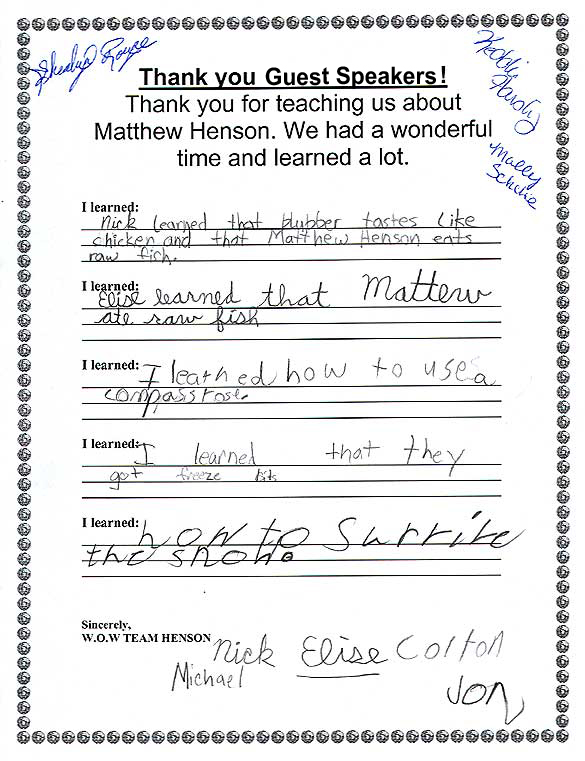 Shealyn Royce
Keddy Hardy
Mally
Schulze
Thank you Guest Speakers!
Thank you for teaching us about
Matthew Henson. We had a wonderful
time and learned a lot.
I learned:
Nick learned that blubber tastes like
chicken and that Matthew Henson eats
raw fich.
I learned:
Elise learned that Mattew
ate raw fish
I learned: I learned how to use a
compass rose.
I learned: I learned that they
got freeze bits
I learned: how to Surrive
the snow.
Sincerely,
W.O.W TEAM HENSON Nick Elise Colton
Michael
Jon